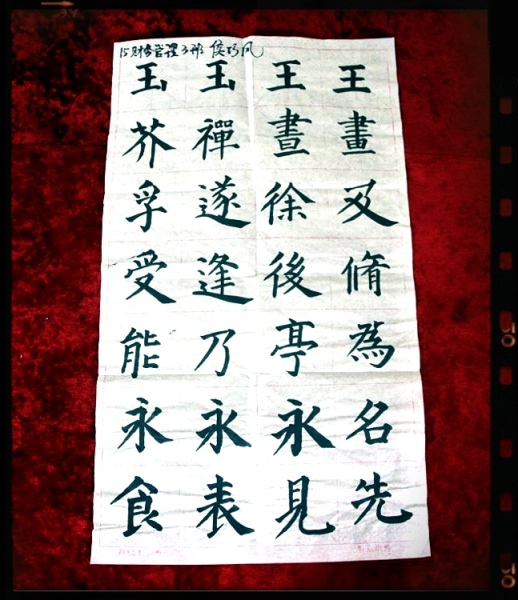 15财务管理3班 侯巧凤
王畫及脩為名先
王晝徐後亭永見
玉禪遂逢乃永表
玉芥孚受能永食